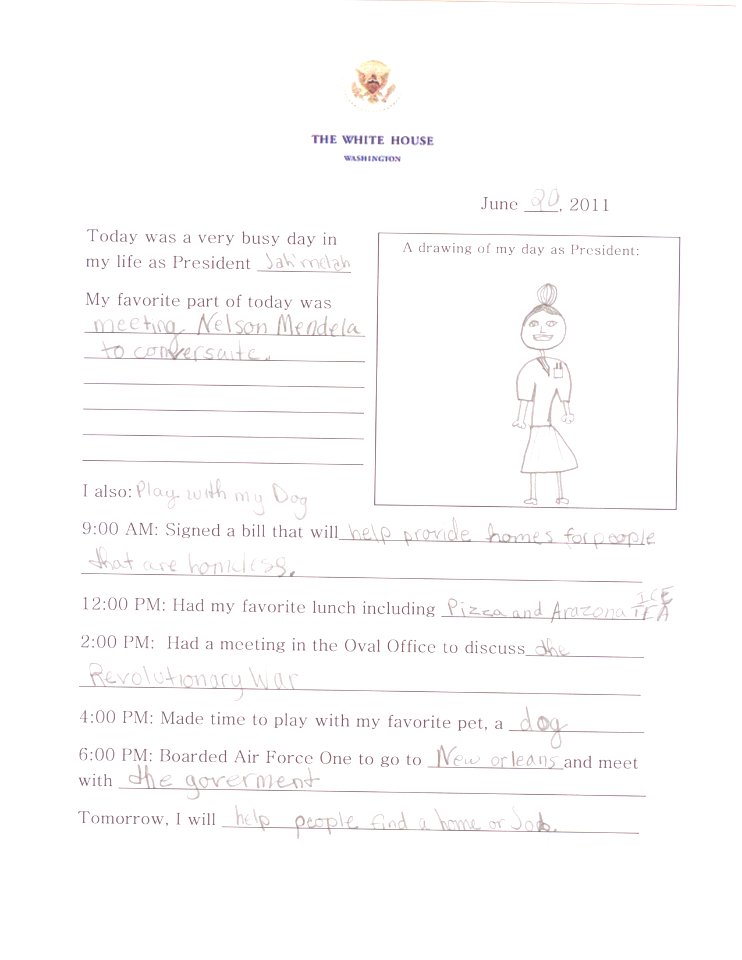 THE WHITE HOUSE
WASHINGTON
June 20, 2011
Today was a very busy day in
my life as President Jah'melah
My favorite part of today was
meeting Nelson Mendela
to conversuite.
A drawing of my day as President:
I also: Play with my Dog
9:00 AM: Signed a bill that will help provide homes for people
that are homless.
12:00 PM: Had my favorite lunch including Pizza and Arazona ICE
TEA
2:00 PM: Had a meeting in the Oval Office to discuss the
Revolutionary War
4:00 PM: Made time to play with my favorite pet, a dog
6:00 PM: Boarded Air Force One to go to New orleans and meet
with the goverment
Tomorrow, I will help people find a home or Job.